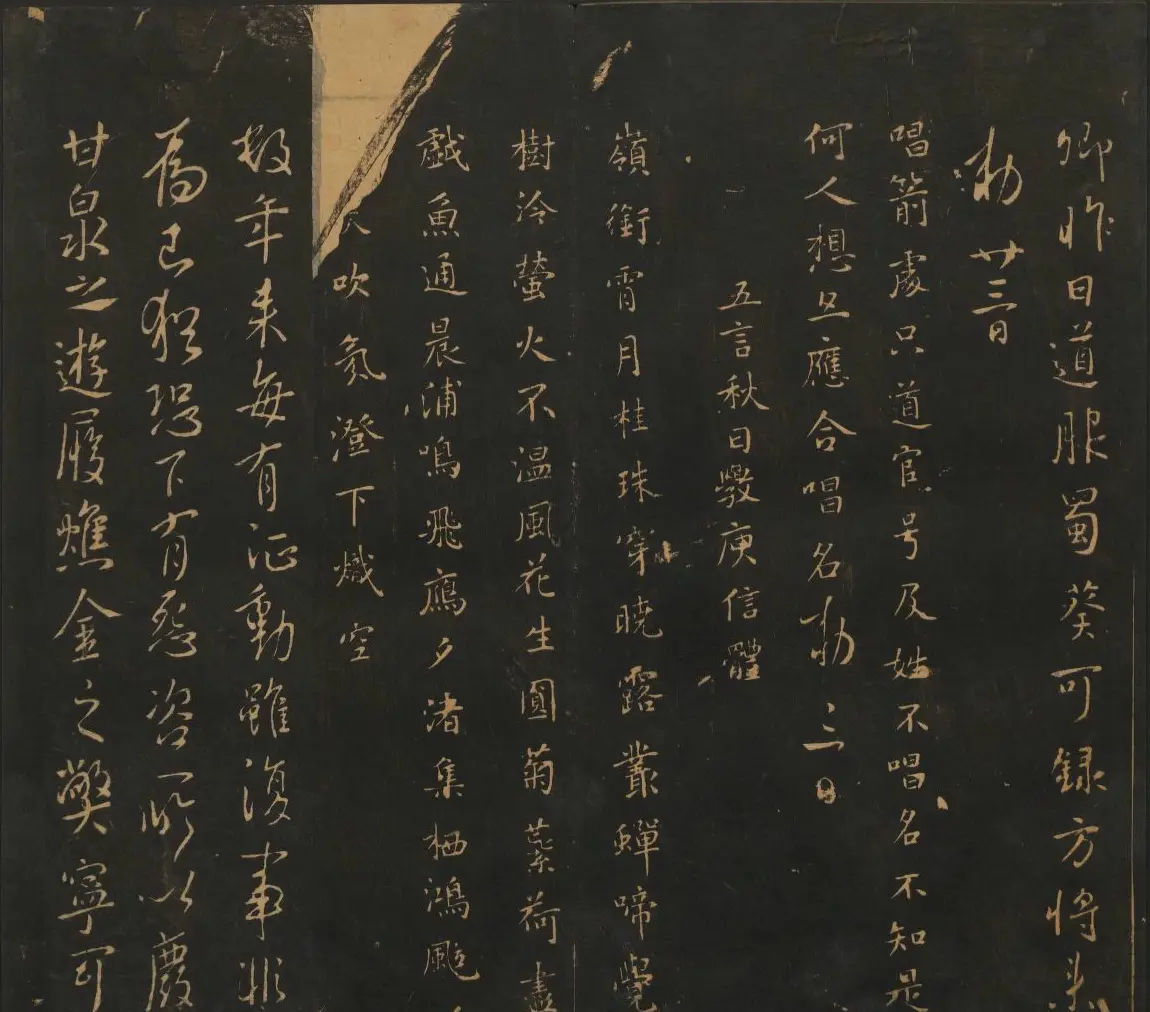 卿昨日道服蜀葵可録方將来
勅 廿三日
唱箭處只道官号及姓不唱名不知是
何人想且應合唱名勅 三日
五言秋日斆庾信體
嶺銜宵月桂珠穿曉露叢蟬啼覺
樹泠螢火不温風花生圓菊蘂荷盡
戱魚通晨浦鳴飛鴈夕渚集栖鴻颭
吹氛澄下熾空
數年来每有征動雖復事非
為己猶恐下有怨咨所以廢
甘泉之遊履燋金之弊寧可